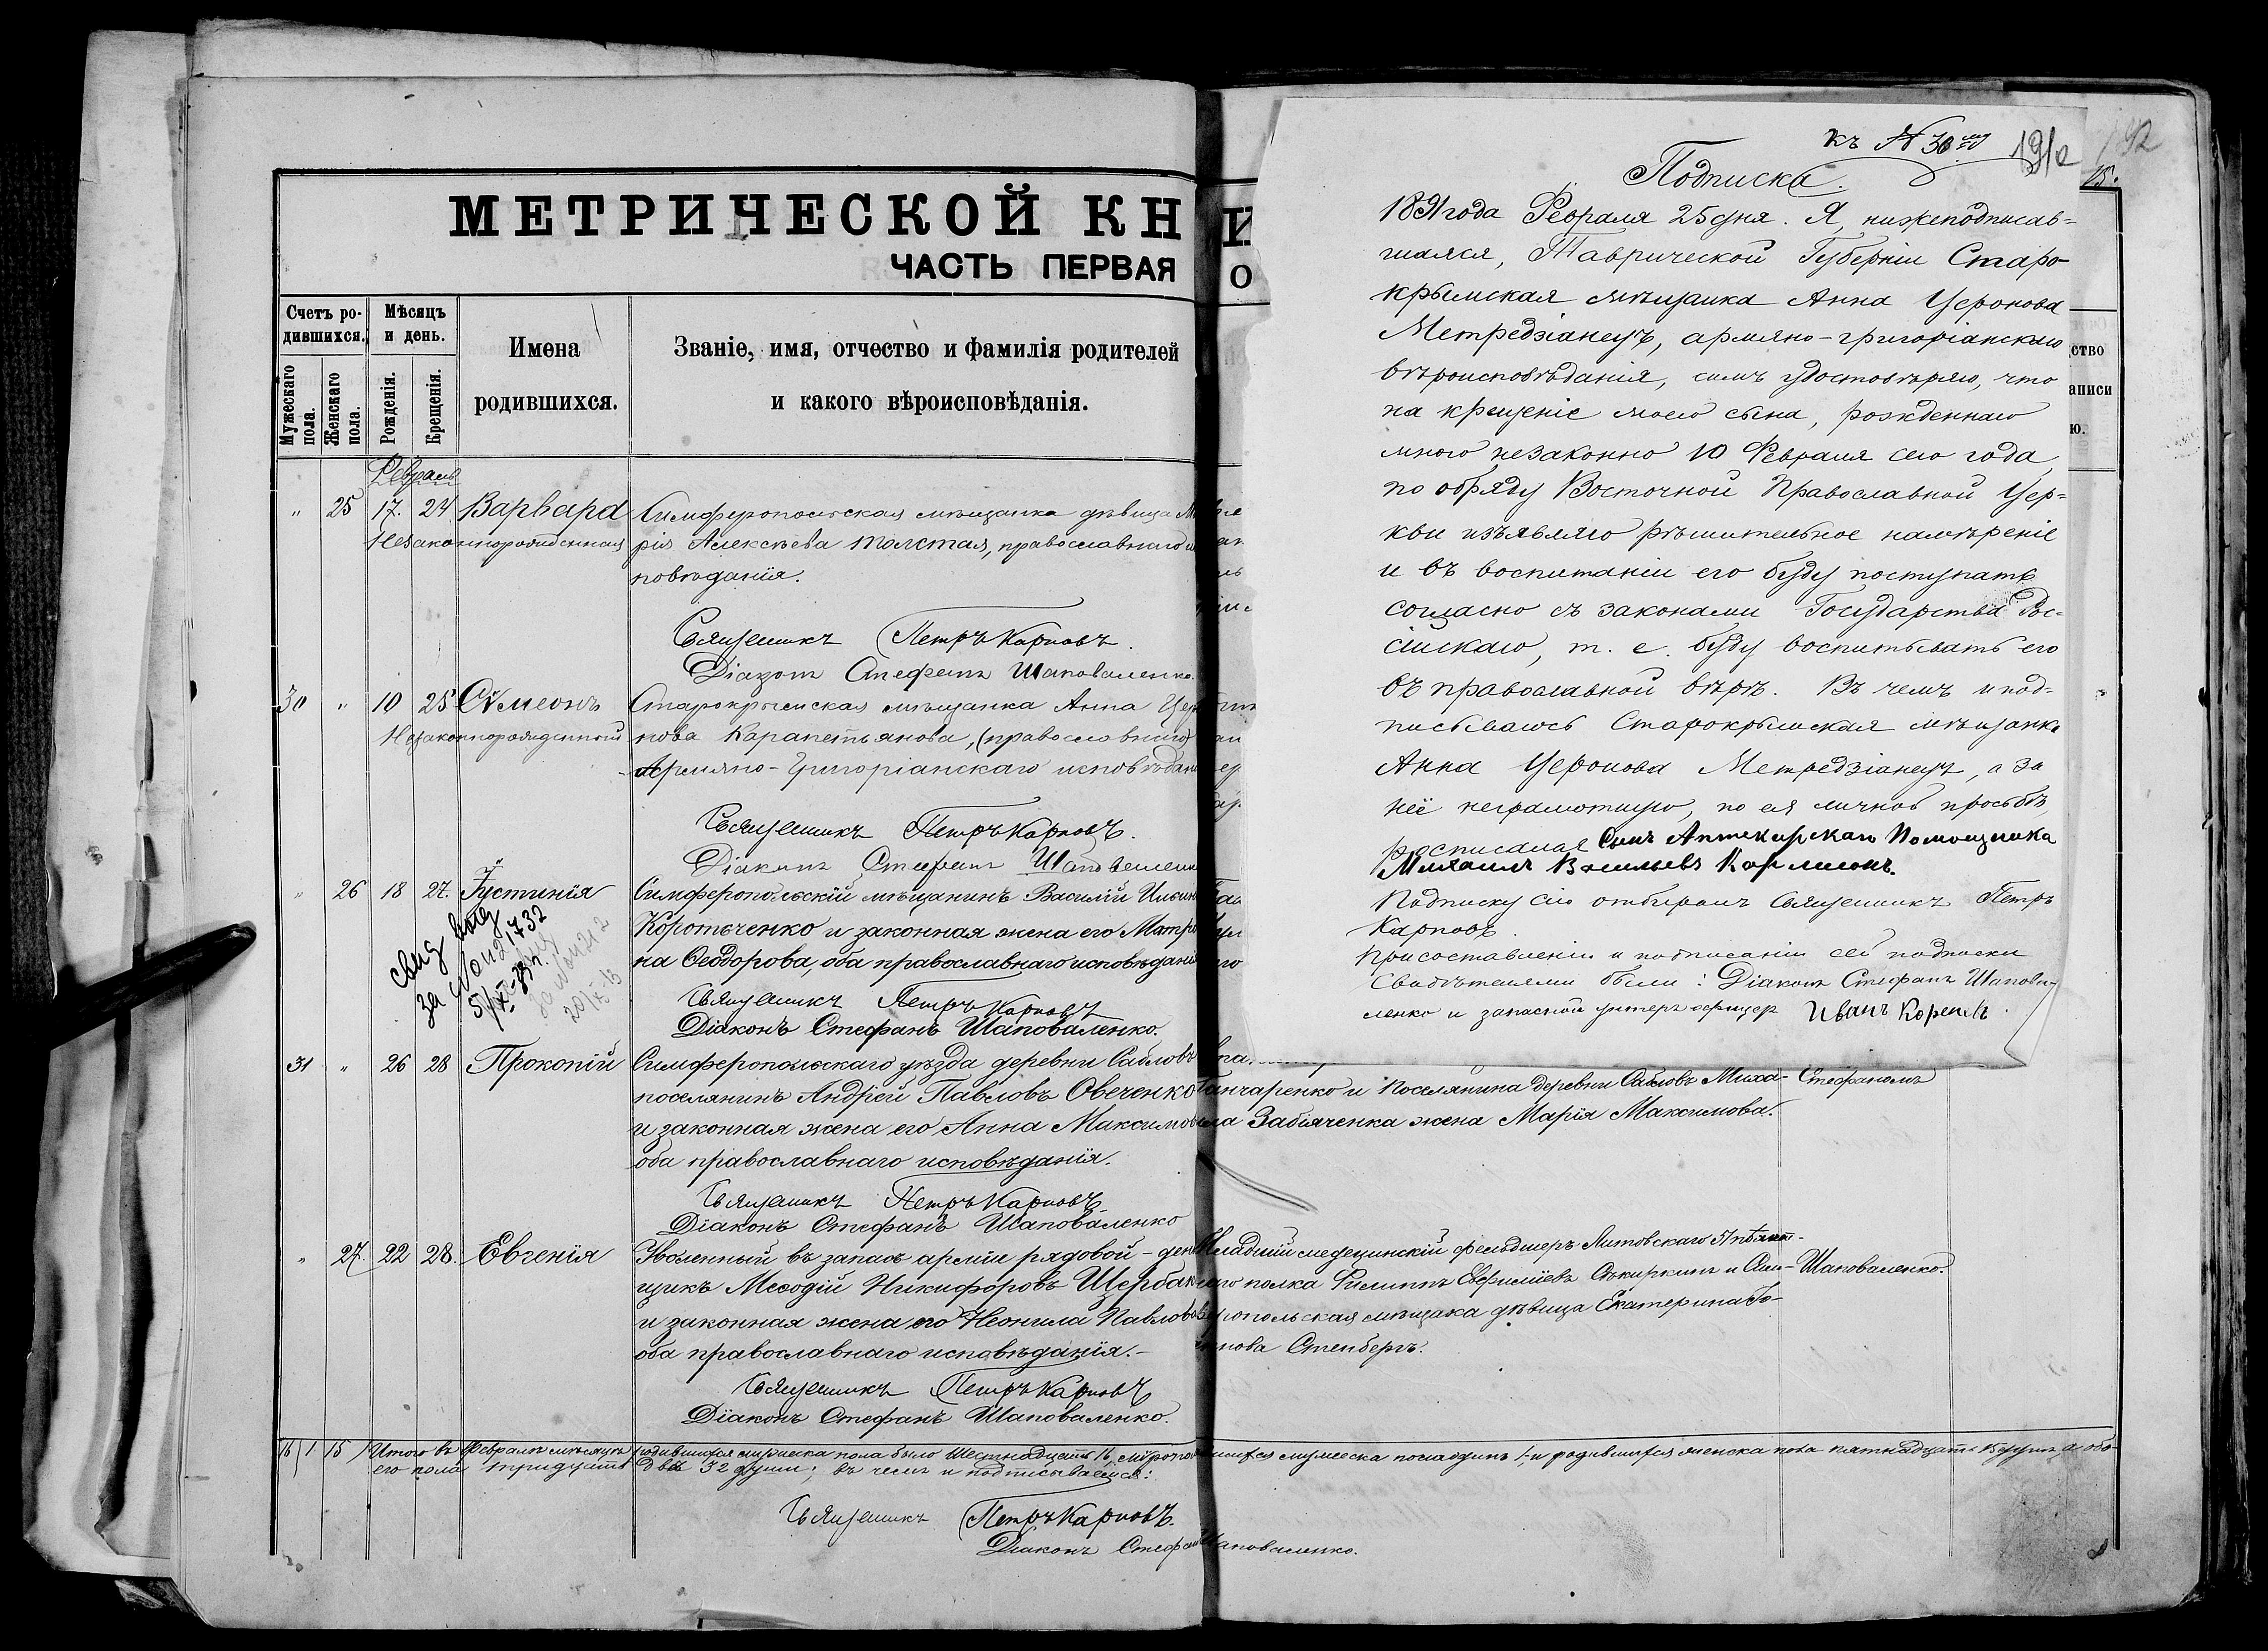 МЕТРИЧЕСКОЙ КН
ЧАСТЬ ПЕРВАЯ
Счетъ ро-
дившихся.
Мужескаго пола.
Женскаго пола.
Мѣсяцъ
и день.
Рожденія.
Крещенія.
Имена
родившихся.
Званіе, имя, отчество и фамилія родителей
и какого вѣроисповѣданія.
Февраль
" 25 17. 24 Варвара Симферопольская мѣщанка дѣвица Ма
Незаконнорожденная рія Алексѣева Толстая, православнаго ис
повѣданія.
Священникъ Петръ Карповъ.
Діаконъ Стефанъ Шаповаленко.
30 " 10 25 Сѵмеонъ Старокрымская мѣщанка Анна Церо
Незаконнорожденный нова Карапетьянова, (православнаго)
Армяно-Григоріанскаго исповѣдан
Священникъ Петръ Карповъ.
Діаконъ Стефанъ Шаповаленк
" 26 18 27. Іустинія Симферопольскій мѣщанинъ Василій Ильин
Коротченко и законная жена его Матро
на Ѳеодорова, оба православнаго исповѣдані
свид
за № 21732
Священникъ Петръ Карповъ
Діаконъ Стефанъ Шаповаленко.
31 " 26 28 Прокопій Симферопольскаго уѣзда деревни Сабловъ
поселянинъ Андрей Павловъ Овеченко
и законная жена его Анна Максимов
оба православнаго исповѣданія.
Священникъ Петръ Карповъ
Діаконъ Стефанъ Шаповаленко
" 27. 22 28. Евгенія Уволенный въ запасъ арміи рядовой-ден
щикъ Меѳодій Никифоровъ Щербак
и законная жена его Неонила Павлов
оба православнаго исповѣданія.-
Священникъ Петръ Карповъ
Діаконъ Стефанъ Шаповаленко.
16 1 15 Итого въ Февралѣ мѣсяцѣ родившихся мужеска пола было Шестнадцать 16, мужеска пола одинъ 1, и родившихся женска пола пятнадцать 15 душъ, а обо-
его пола тридцать два 32 души; въ чемъ и подписываемся:
Священникъ Петръ Карповъ.
Діаконъ Стефанъ Шаповаленко.
къ № 30му
192
15.
Подписка.
1891 года Февраля 25 дня. Я, нижеподписав-
шаяся, Таврической Губерніи Старо-
крымская мѣщанка Анна Церонова
Метредзіанецъ, армяно-григоріанскаго
вѣроисповѣданія, симъ удостовѣряю, что
на крещеніе моего сына, рожденнаго
мною незаконно 10 Февраля сего года,
по обряду Восточной Православной Цер-
кви изъявляю рѣшительное намѣреніе
и въ воспитаніи его буду поступать
согласно съ законами Государства Рос-
сійскаго, т. е. буду воспитывать его
въ православной вѣрѣ. Въ чемъ и под-
писываюсь Старокрымская мѣщанка
Анна Церонова Метредзіанецъ, а за
неё неграмотную, по ея личной просьбѣ,
росписался Сынъ Аптекарскаго Помощника
Михаилъ Васильевъ
Подписку сію отбиралъ Священникъ Петръ
Карповъ.
При составленіи и подписаніи сей подписки
Свидѣтелями были: Діаконъ Стефанъ Шапова-
ленко и запасной унтеръ-офицеръ Иванъ
ство
аписи
ю.
Ганчаренко и Поселянина деревни Сабловъ Миха- Стефаномъ
ила Забіяченка жена Марія Максимова.
Младшій медецинскій фельдшеръ Литовскаго 51 пѣхот-
наго полка Филиппъ и Сим- Шаповаленко.
феропольская мѣщанка дѣвица Екатерина
Стенбергъ.